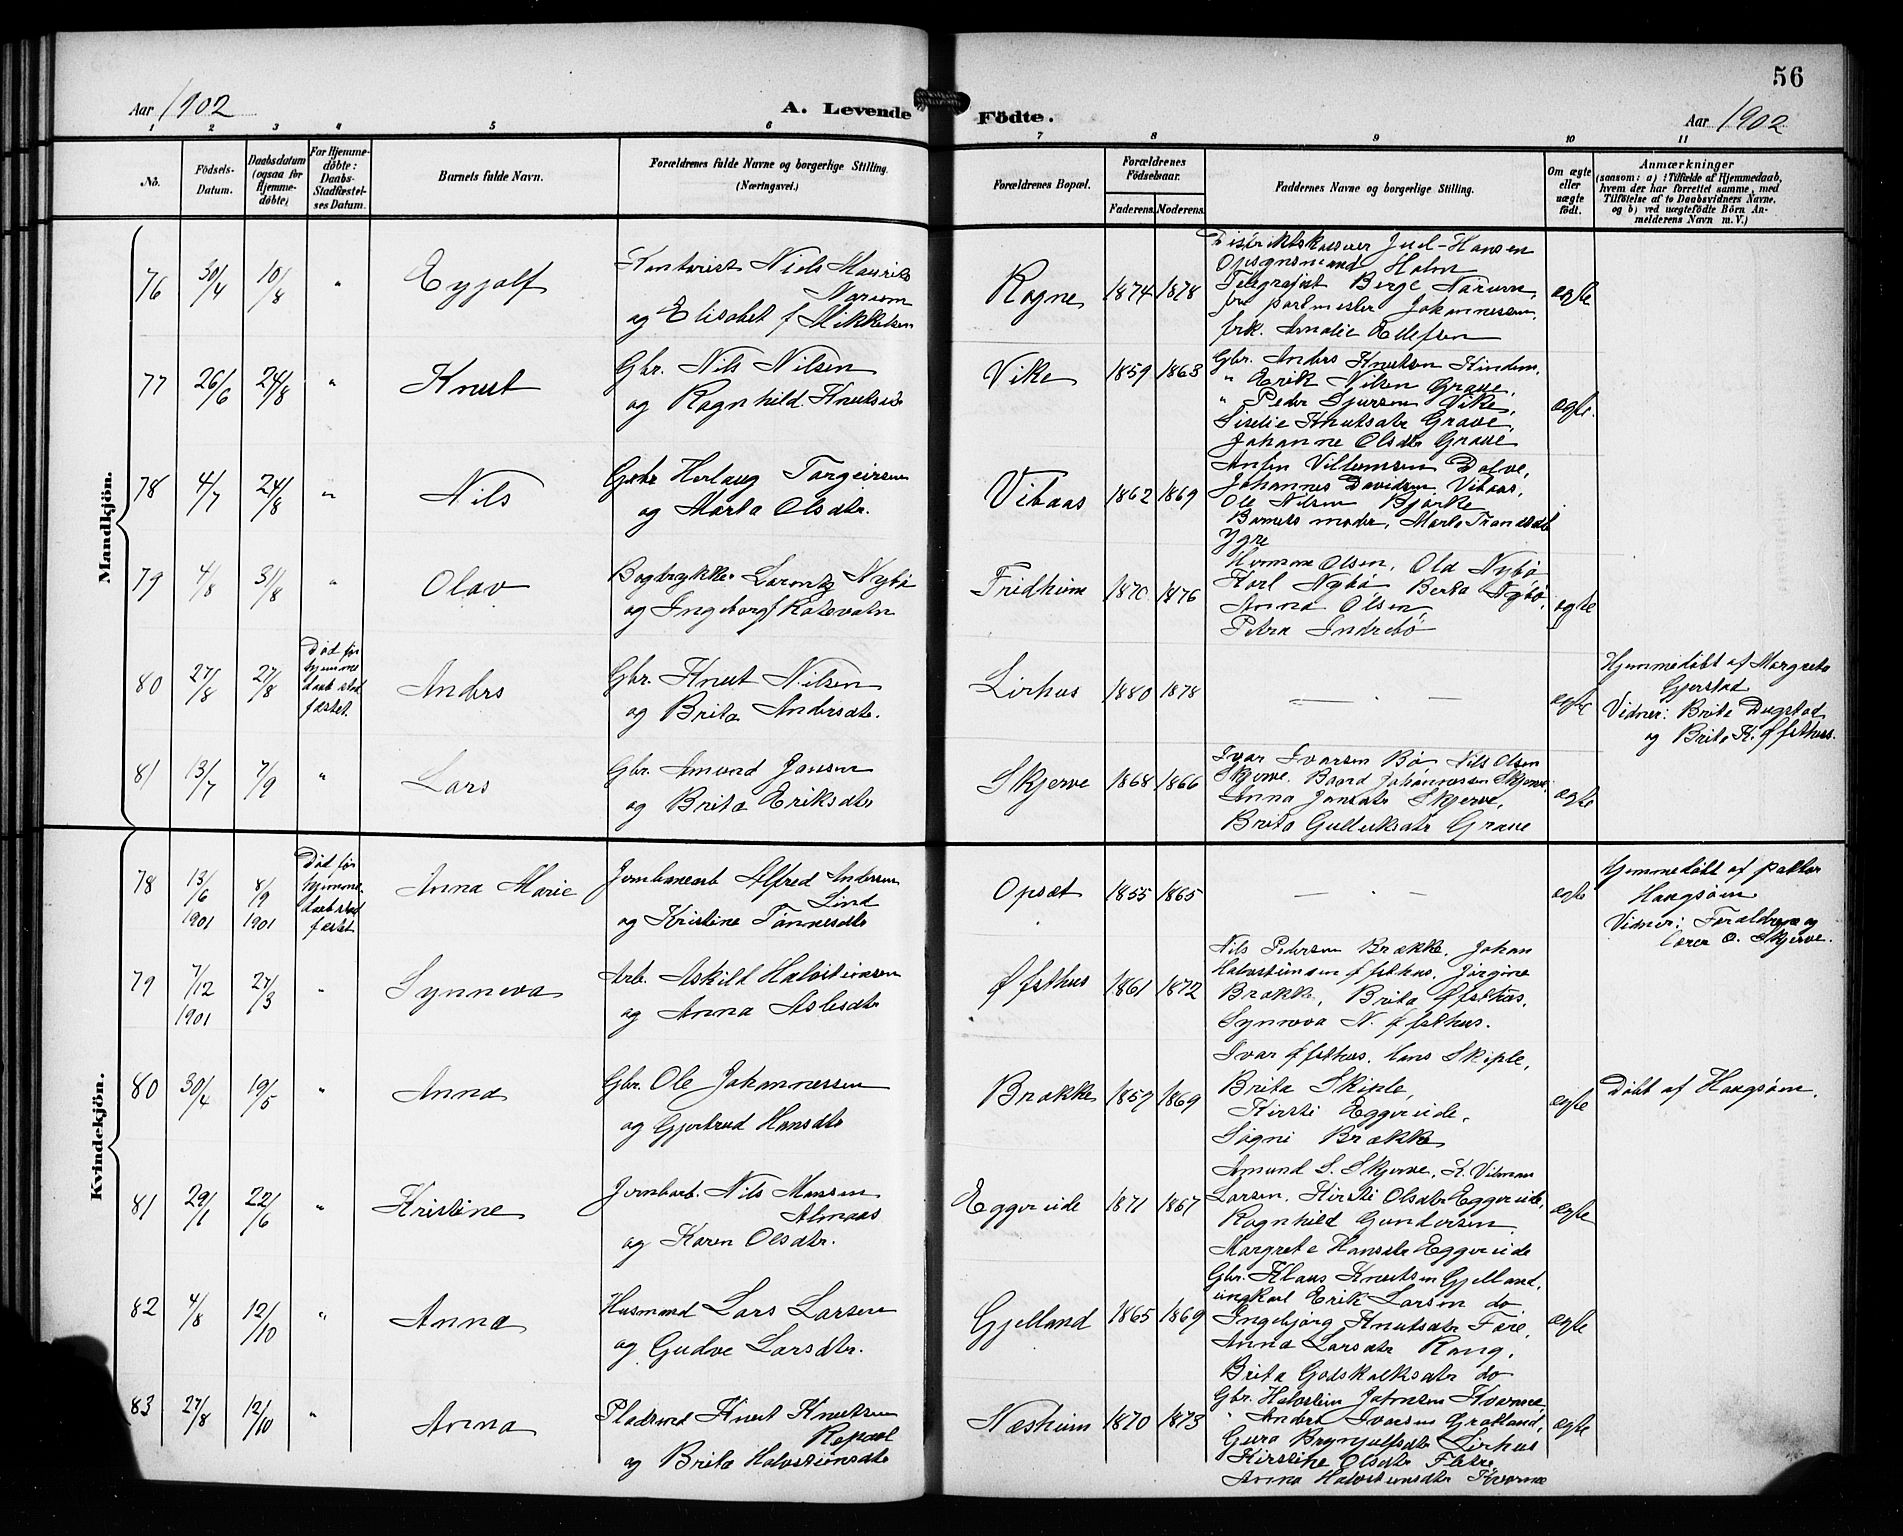 56
Aar 1902
A. Levende Födte.
Aar 1902
1 2 3 4 5 6 7 8 9 10 11
No.
Födsels-Datum.
Daabsdatum (ogsaa for Hjemme-döbte)
For Hjemme-döbte: Daabs-Stadfæstel-ses Datum.
Barnets fulde Navn.
Forældrenes fulde Navne og borgerlige Stilling. (Næringsvei.)
Forældrenes Bopæl.
Forældrenes Födselsaar.
Faderens. Moderens.
Faddernes Navne og borgerlige Stilling.
Om ægte eller uægte født.
Anmærkninger
(saasom: a) i Tilfælde af Hjemmedaab, hvem der har forrettet samme, med Tilföielse af to Daabsvidners Navne, og b) ved uægtefödte Börn An-melderens Navn m. V.)
Mandkjön.
76 30/4 10/8 " Eyjolf
Kontorist Niels Maurits
og Elisabet f. Mikkelsen
Rogne 1874 1878
Juel-Hansen
Opsynsmand Holm
Telegrafist Berge
Johannessen,
frk. Amalie Ellefsen
ægte
77 26/6 24/8 " Knut
Gbr. Nils Nilsen
og Ragnhild Knutsdr
Vike 1859 1863
Gbr. Anders Knutsen Kindem,
" Erik Nilsen Grave,
" Peder Sjursen Vike,
Sisilie Knutsdtr Grave,
Johanne Olsdtr Grave
ægte.
78 4/7 24/8 " Nils
Gbr Herlaug Torgeirsen
og Marta Olsdtr.
Vibaas 1862 1869
Anfin Villumsen Dolve,
Johannes Davidsen Vibaas,
Ole Nilsen Bjørke
Barnets moder,
Ygre
79 4/8 31/8 " Olav
Bogtrykker Lorentz Nybø
og Ingeborg f. Rotevatn
Fridheim 1870 1876
Olsen, Ola Nybø
Karl Nybø, Berta Nybø,
Anna Olsen,
Petra Indrebø
ægte
80 27/8 27/8 Død før hjemme daab stad fæstet.
Anders
Gbr. Knut Nilsen
og Brita Andersdtr.
Lirhus 1880 1878
— — —
ægte
Hjemmedøbt af Margreta
Gjerstad
Vidner: Brita Dugstad
og Brita K. Øfsthus.
81 13/7 7/9 " Lars
Gbr. Amund Jonsen
og Brita Eriksdtr
Skjerve 1868 1866
Ivar Ivarsen Bø Nils Olsen
Skjerve. Baard Johannessen Skjerve
Anna Jonsdtr Skjerve,
Brita Gulleiksdtr Grave
ægte
Kvindekjön.
78 13/6 1901 8/9 1901 Død før hjemme daab stad fæstet
Anna Marie
Jernbanearb Alfred Andersen
Lind
og Kristine Tønnesdtr
Opsæt 1855 1865
— " —
ægte
Hjemmedøbt af pastor
Haugsøen
Vidner: Forældrene og
lærer O. Skjerve.
79 7/12 1901 27/3 " Synneva
Arb. Askild Halvsteinsen
og Anna Aslesdtr
Øfsthus 1861 1872
Nils Pedersen Brække, Johan
Halvsteinsen Øfsthus, Jørgine
Brække, Brita Øfsthus,
Synneva N. Øfsthus.
80 30/4 19/5 " Anna
Gbr. Ole Johannessen
og Gjertrud Hansdtr
Brække 1859 1869
Ivar Øfsthus, Hans Skiple,
Brita Skiple,
Kirsti Eggereide,
Søgni Brække
ægte
Døbt af Haugsøen.
81 29/1 22/6 " Kristine
Jernbarb. Nils Monsen
Almaas
og Karen Olsdtr.
Eggereide 1871 1867
Amund S. Skjerve, K. Vilman
Larsen, Kirsti Olsdtr Eggereide,
Ragnhild Gundersen
Margrete Hansdtr Eggereide
ægte
82 4/8 12/10 " Anna
Husmand Lars Larsen
og Gudve Larsdtr.
Gjelland 1865 1869
Gbr. Klaus Knutsen Gjelland,
ungkarl Erik Larsen do
Ingebjørg Knutsdtr Føre,
Anna Larsdtr Rong,
Brita Godskalksdtr do
ægte
83 27/8 12/10 " Anna
Pladsmd Knut Knutsen
Repaal
og Brita Halvsteinsdtr
Næsheim 1870 1873
Gbr. Halvstein Johnsen Kvarme
" Anders Ivarsen
Guro Brynjulfsdtr Lirhus
Kirstine Olsdtr Flatre
Anna Halvsteinsdtr Kvarme
ægte